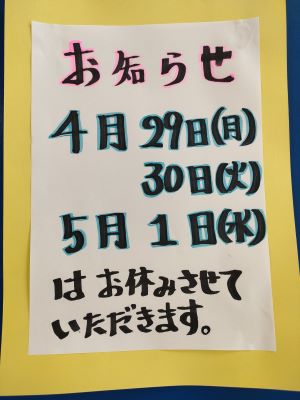 お知らせ
4月29日(月)
30日(火)
5月1日(水)
はお休みさせて
いただきます。